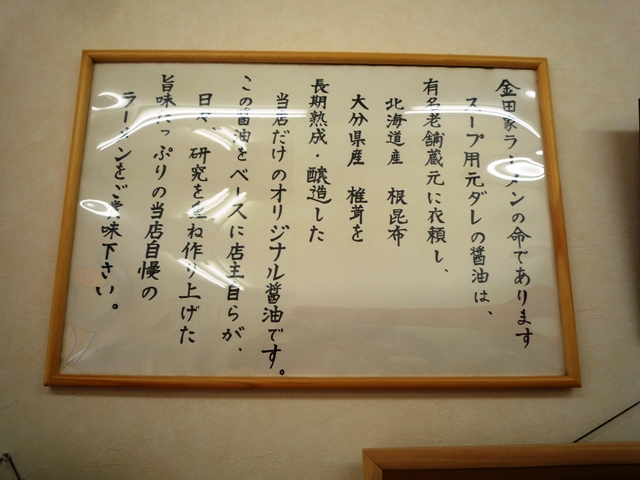 金田家ラーメンの命であります
スープ用元ダレの醤油は、
有名老舗蔵元に衣頼し、
北海道産 根昆布
大分県産 椎茸を
長期熟成・醸造した
当店だけのオリジナル醤油です。
この醤油をベースに店主自らが、
日々、研究を重ね作り上げた
旨味たっぷりの当店自慢の
ラーメンをご賞味下さい。